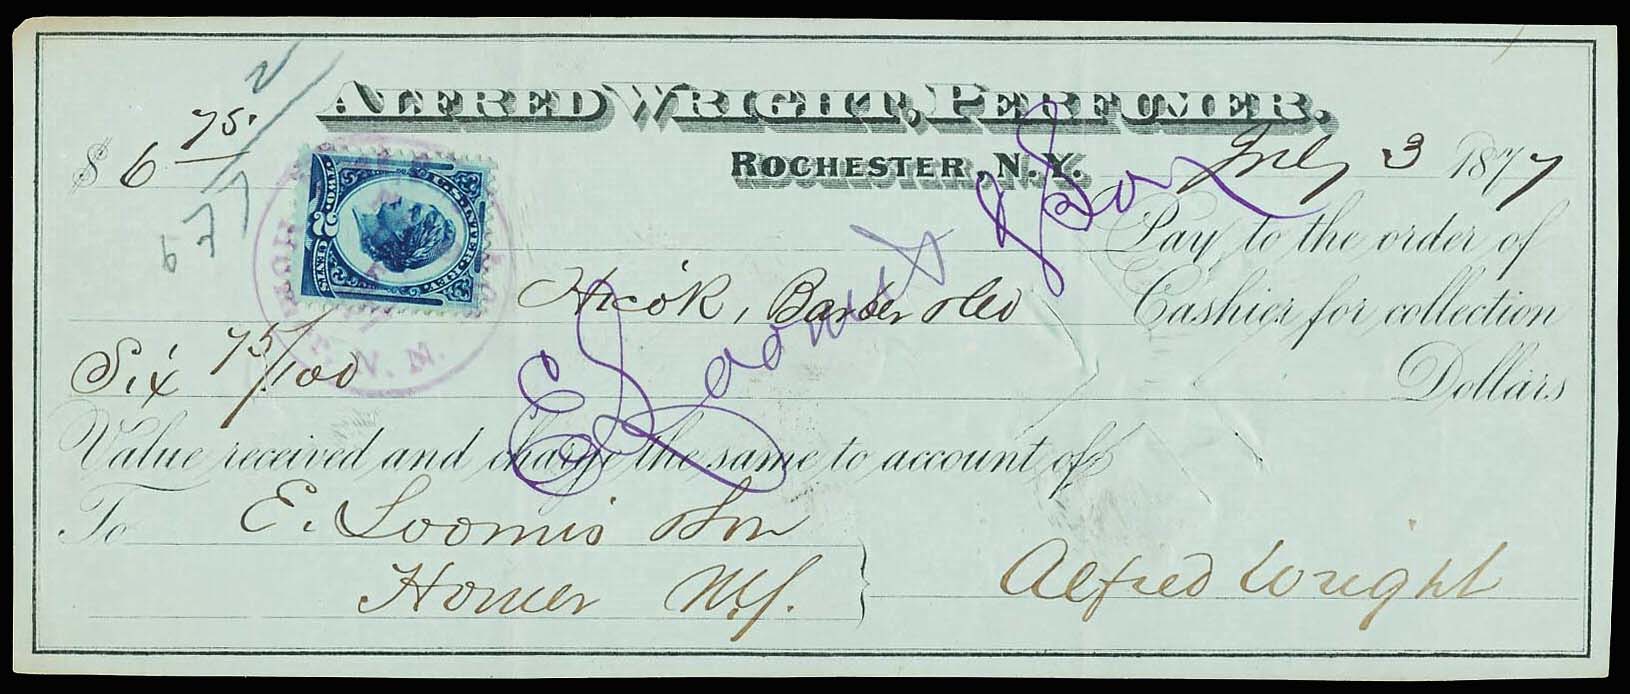 ALFRED WRIGHT, PERFUMER.
ROCHESTER, N.Y. July 3 1877
$ 6 75
2
677
U.S. INTER. REV.
TWO 2 CENTS
Pay to the order of
Hicok, Barber & Co Cashier for collection
Six 75/100 Dollars
Value received and charge the same to account of
To E. Loomis & Son
Homer N.Y.
Alfred Wright
E Loomis & Son